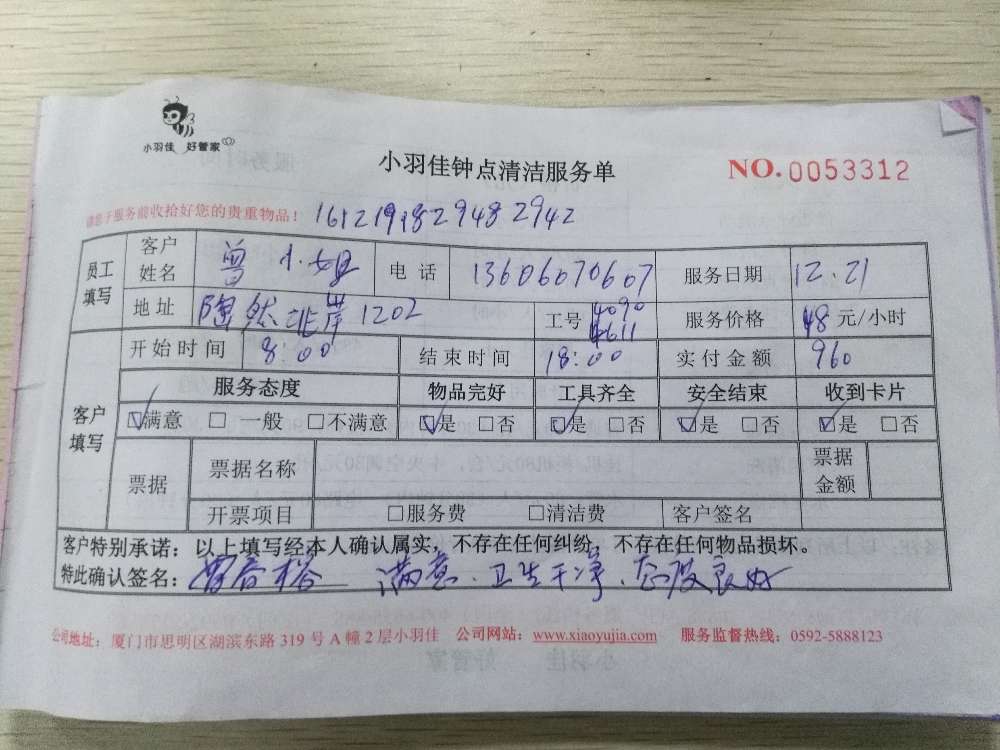 小羽佳 好管家
小羽佳钟点清洁服务单
NO.0053312
请您于服务前收拾好您的贵重物品！ 161219829482942
员工填写 客户姓名 曾小姐 电话 13606070607 服务日期 12.21
地址 陶然北岸1202 工号 4090 4611 服务价格 48元/小时
客户填写 开始时间 8:00 结束时间 18:00 实付金额 960
服务态度 物品完好 工具齐全 安全结束 收到卡片
☑满意 □一般 □不满意 ☑是 □否 ☑是 □否 ☑是 □否 ☑是 □否
票据 票据名称 票据金额
开票项目 □服务费 □清洁费 客户签名
客户特别承诺：以上填写经本人确认属实，不存在任何纠纷，不存在任何物品损坏。
特此确认签名： 满意.卫生干净.态度良好
公司地址：厦门市思明区湖滨东路319号A幢2层小羽佳 公司网站：www.xiaoyujia.com 服务监督热线：0592-5888123